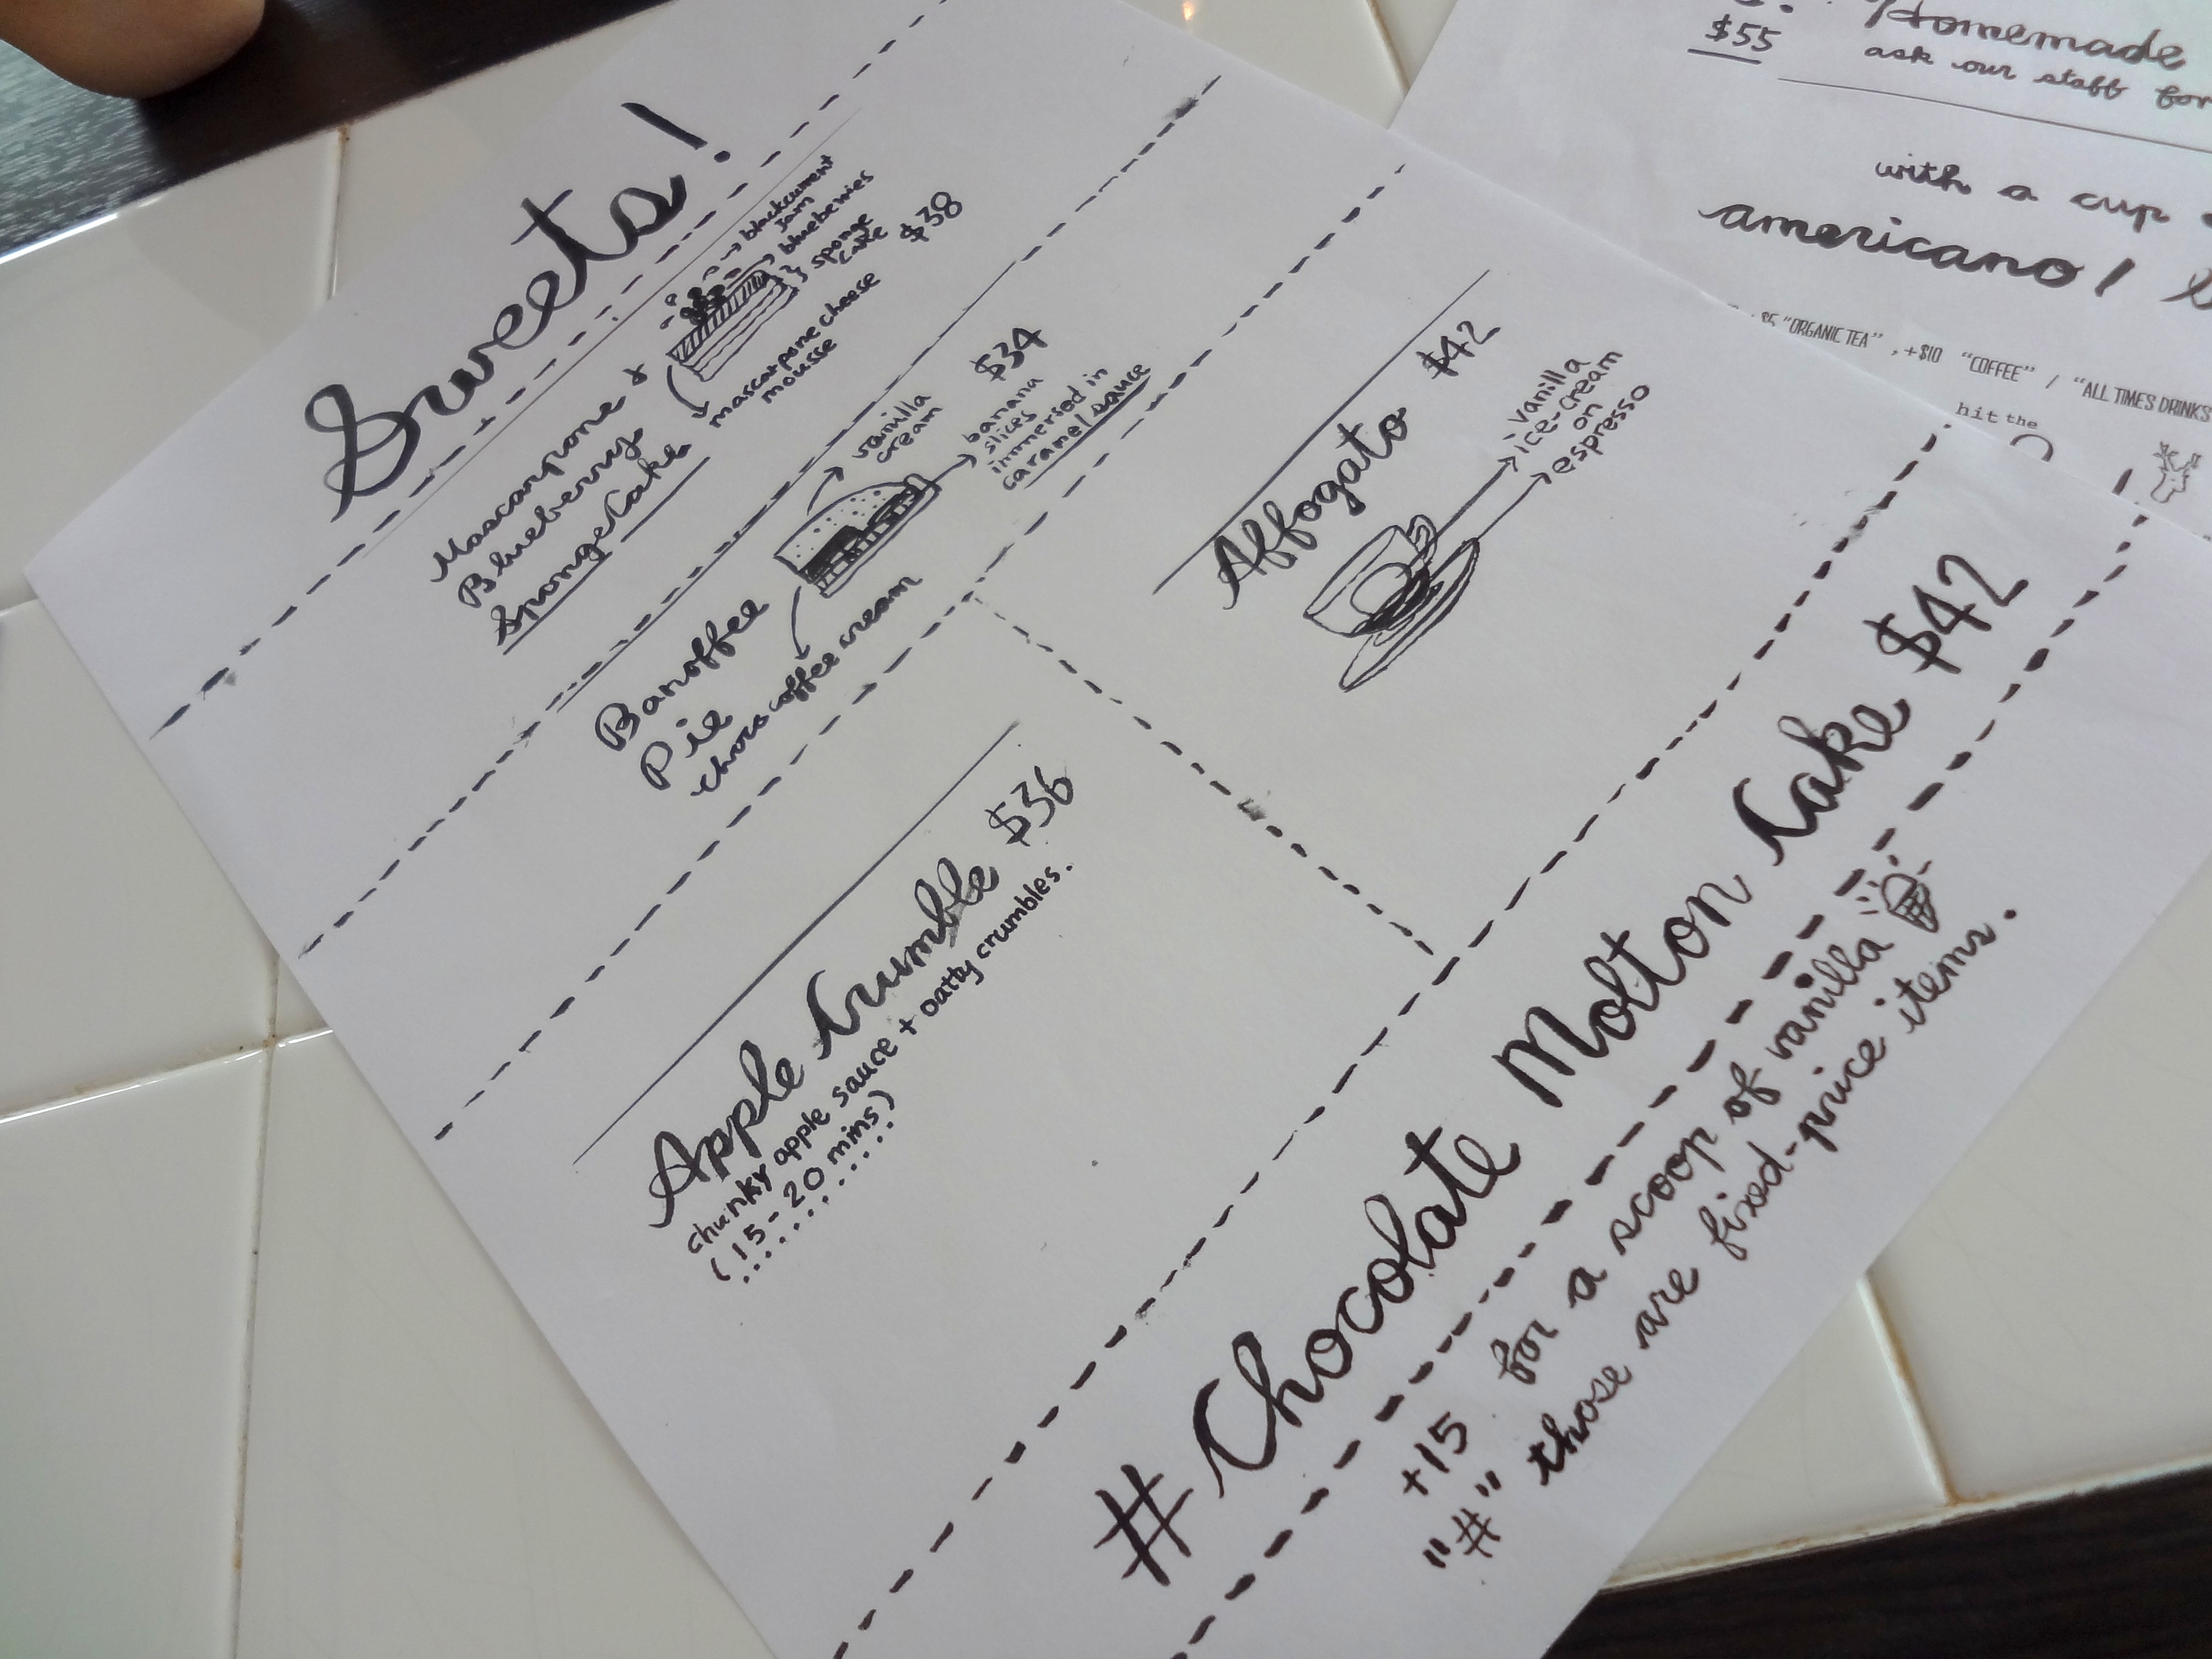 Sweets!
Mascarpone &
Blueberry
Sponge Cake
blackcurrent
jam
blueberries
sponge
cake
$38
mascarpone cheese
mousse
Banoffee
Pie
vanilla
cream
$34
banana
slices
immersed in
caramel sauce
choco coffee cream
Affogato
$42
vanilla
ice-cream
on
espresso
Apple Crumble $36
chunky apple sauce + oatty crumbles.
(15-20 mins)
# Chocolate Molton Cake $42
+15 for a scoop of vanilla
"#" those are fixed-price items.
$55
Homemade
ask our staff for
with a cup
americano!
$5 "ORGANIC TEA", +$10 "COFFEE" / "ALL TIMES DRINKS
hit the